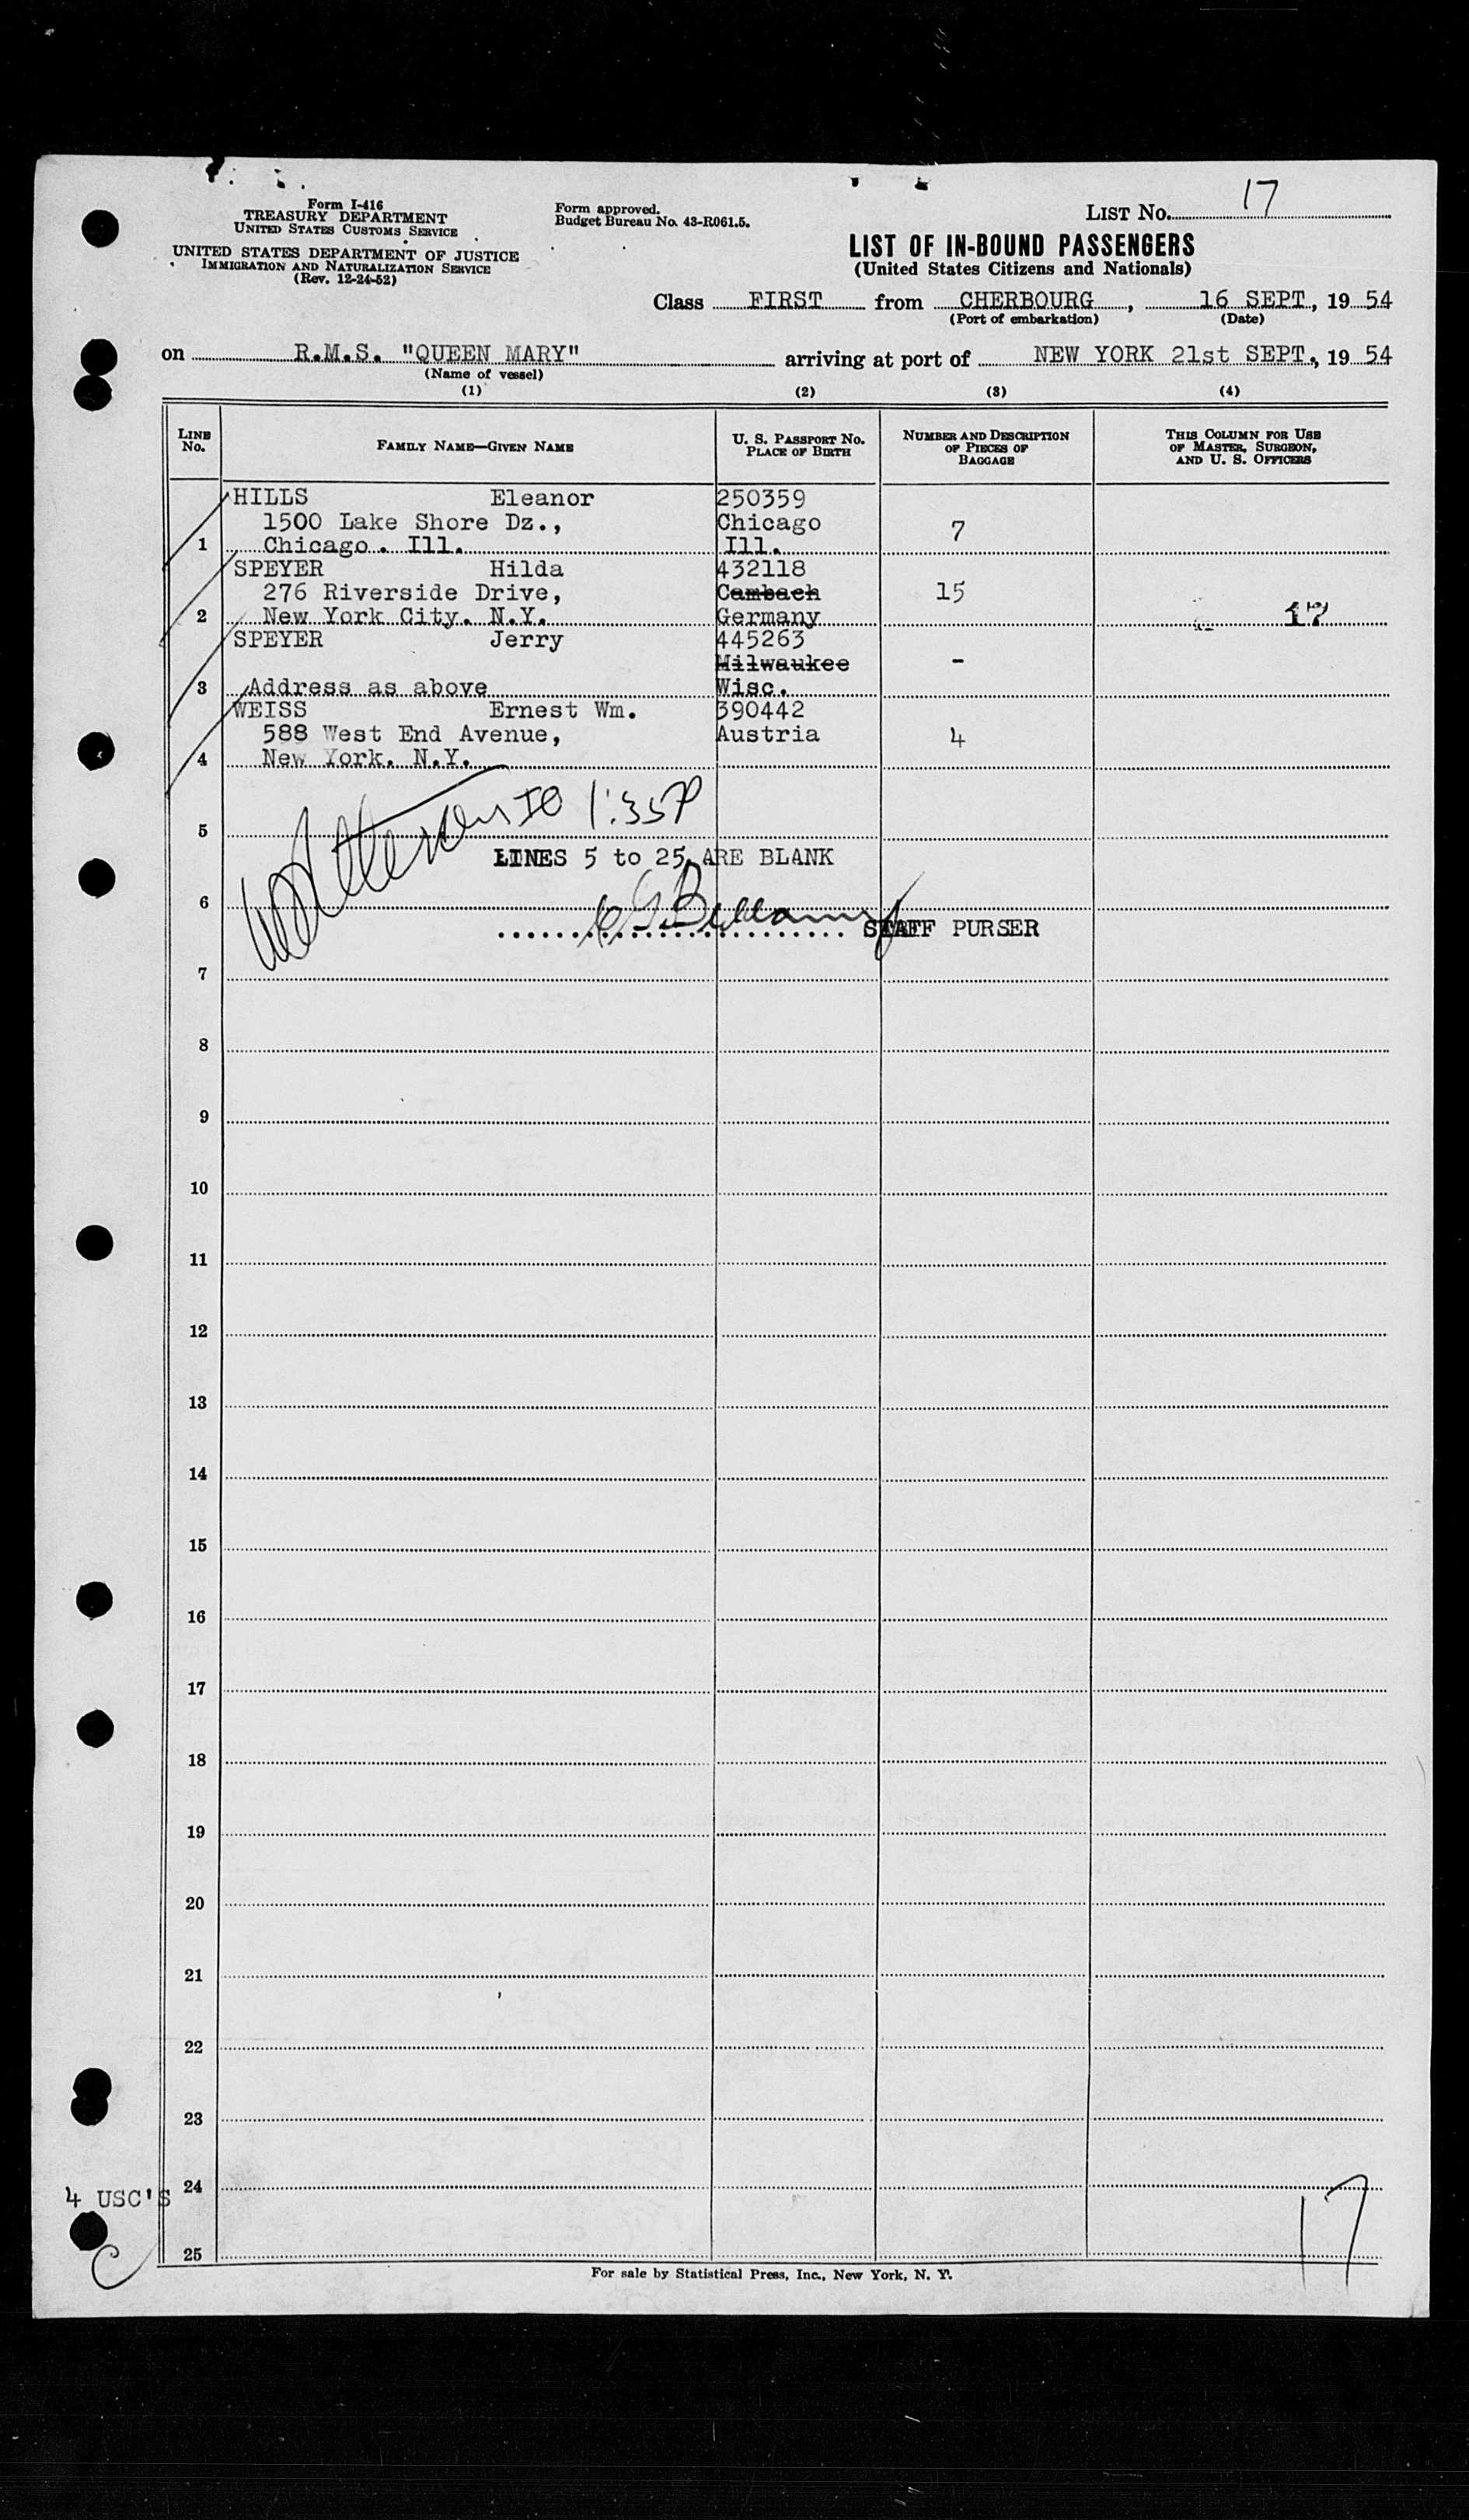 Form I-416
TREASURY DEPARTMENT
UNITED STATES CUSTOMS SERVICE
UNITED STATES DEPARTMENT OF JUSTICE
IMMIGRATION AND NATURALIZATION SERVICE
(Rev. 12-24-52)
Form approved.
Budget Bureau No. 43-R061.5.
LIST No. 17
LIST OF IN-BOUND PASSENGERS
(United States Citizens and Nationals)
Class FIRST from CHERBOURG, 16 SEPT, 19 54
(Port of embarkation) (Date)
on R.M.S. "QUEEN MARY" arriving at port of NEW YORK 21st SEPT., 19 54
(Name of vessel)
(1) (2) (3) (4)
LINE No. FAMILY NAME—GIVEN NAME U. S. PASSPORT No. PLACE OF BIRTH NUMBER AND DESCRIPTION OF PIECES OF BAGGAGE THIS COLUMN FOR USE OF MASTER, SURGEON, AND U. S. OFFICERS
HILLS Eleanor 250359
1500 Lake Shore Dz., Chicago 7
1 Chicago. Ill. Ill.
SPEYER Hilda 432118
276 Riverside Drive, Cambach 15
2 New York City. N.Y. Germany 17
SPEYER Jerry 445263
Milwaukee -
3 Address as above Wisc.
WEISS Ernest Wm. 390442
588 West End Avenue, Austria 4
4 New York. N.Y.
IO 1:35P
5
LINES 5 to 25 ARE BLANK
6
CGBellamy STAFF PURSER
7
8
9
10
11
12
13
14
15
16
17
18
19
20
21
22
23
4 USC'S 24
25
17
For sale by Statistical Press, Inc., New York, N. Y.